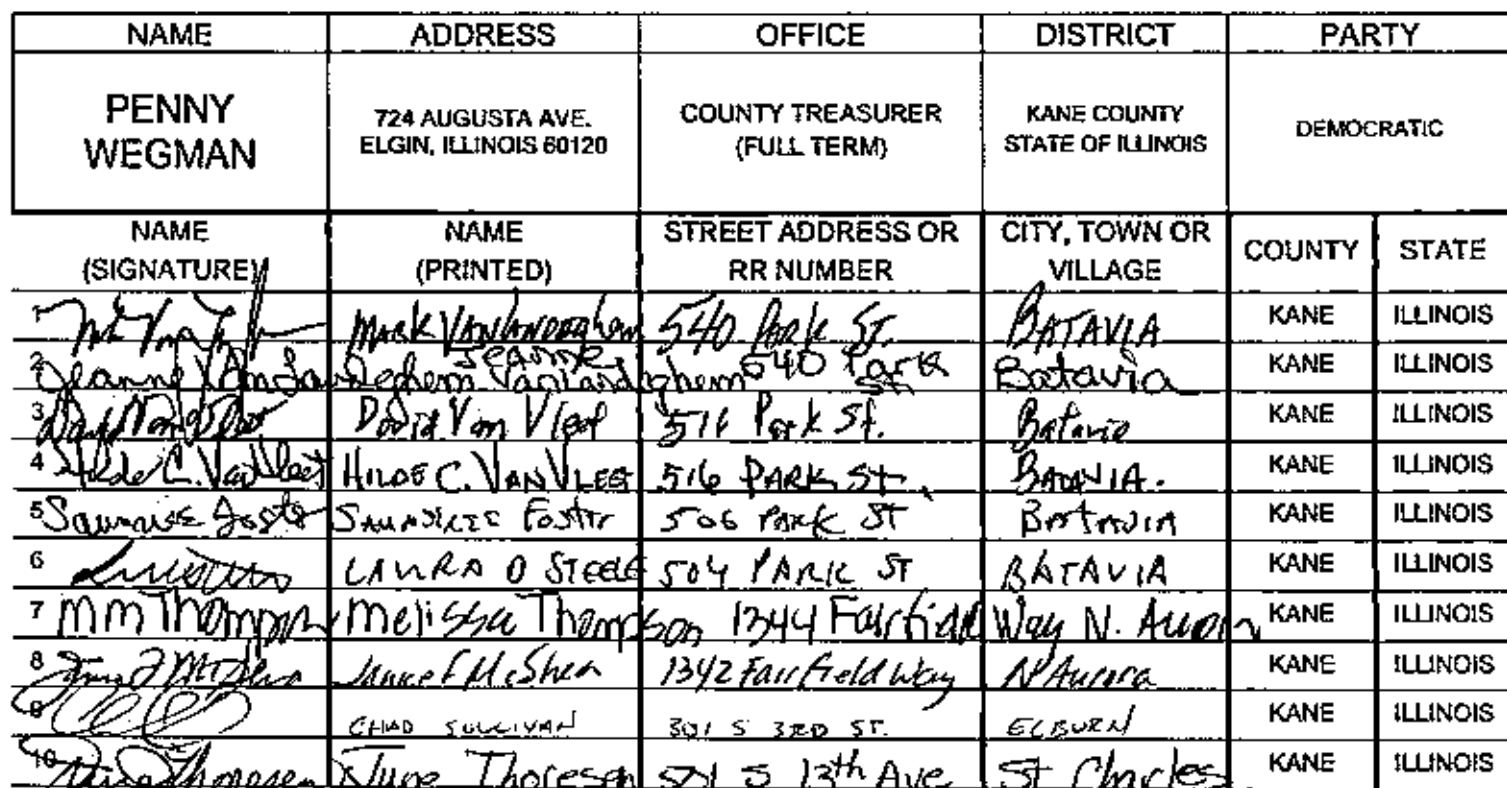 NAME ADDRESS OFFICE DISTRICT PARTY
PENNY WEGMAN 724 AUGUSTA AVE. ELGIN, ILLINOIS 60120 COUNTY TREASURER (FULL TERM) KANE COUNTY STATE OF ILLINOIS DEMOCRATIC
NAME (SIGNATURE) NAME (PRINTED) STREET ADDRESS OR RR NUMBER CITY, TOWN OR VILLAGE COUNTY STATE
1 Mark VanLandeghem 540 Park St. BATAVIA KANE ILLINOIS
2 Jeanne VanLandeghem Jeanne VanLandeghem 540 Park St Batavia KANE ILLINOIS
3 David Van Vleet David Van Vleet 516 Park St. Batavia KANE ILLINOIS
4 Hilde C. Van Vleet HILDE C. VAN VLEET 516 PARK ST. BATAVIA. KANE ILLINOIS
5 Foster Foster 506 PARK ST BATAVIA KANE ILLINOIS
6 LAURA D STEELE 504 PARK ST BATAVIA KANE ILLINOIS
7 MM Thompson Melissa Thompson 1344 Fairfield Way N. Aurora KANE ILLINOIS
8 1342 Fairfield Way N Aurora KANE ILLINOIS
9 CHAD SULLIVAN 301 S 3RD ST. ELBURN KANE ILLINOIS
10 June Thoresen June Thoresen 501 S 13th Ave St Charles KANE ILLINOIS